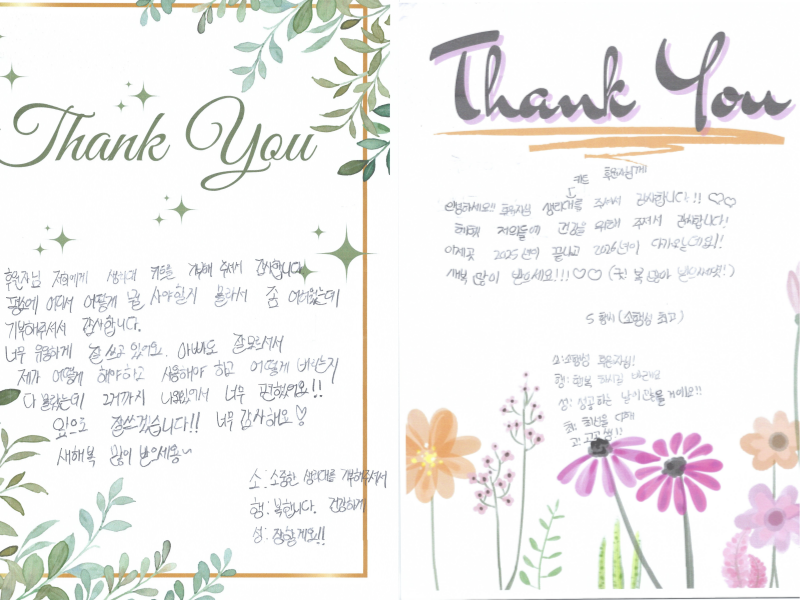 Thank You
후원자님 저희에게 생리대 키트를 기부해 주셔서 감사합니다
평소에 어디서 어떻게 뭘 사야할지 몰라서 좀 어려웠는데
기부해주셔서 감사합니다.
너무 유용하게 잘 쓰고 있어요. 아빠도 잘 모르셔서
제가 어떻게 해야하고 사용해야 하고 어떻게 버리는지
다 몰랐는데 그거까지 나와있어서 너무 편했어요!!
앞으로 잘쓰겠습니다!! 너무 감사해요♡
새해복 많이 받으세요~
소: 소중한 생리대를 기부해주셔서
행: 복합니다. 건강하게
성: 장할게요!!
Thank You
키트 후원자님께
안녕하세요!! 후원자님 생리대를 주셔서 감사합니다!! ♡♡
저희들에 건강을 위해 주셔서 감사합니다!
이제곧 2025년이 끝나고 2026년이 다가오는데요!
새해 복 많이 받으세요!!! ♡♡ (꼭! 복 많이 받으셔야해요!)
(소행성 최고)
소: 소행성 후원자님!!
행: 행복 하시길 바라며
성: 성공하는 날이 있을거에요!!
최: 최선을 다해
고: 고고씽!!